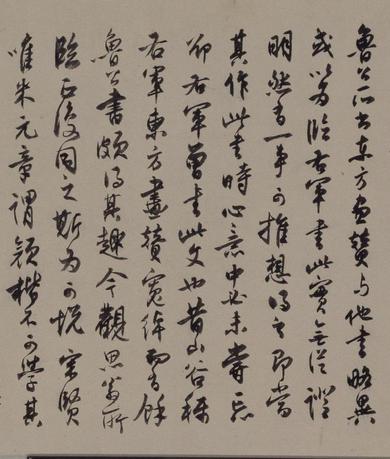 魯公所書東方畫贊与他書略異
或以為臨右軍書此實無從證
明然有一事可推想得之即當
其作此書時心意中必未嘗忘
卻右軍曾書此文也昔山谷稱
右軍東方畫贊寬綽而有餘
魯公書頗得其趣今觀思翁所
臨正復同之斯為可悅寶賢
唯米元章謂顏楷不可學其